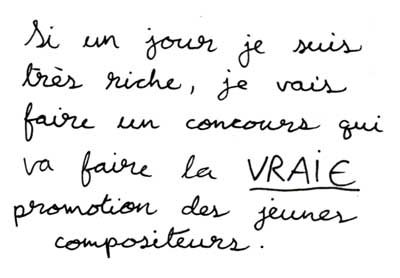 Si un jour je suis
très riche, je vais
faire un concours qui
va faire la VRAIE
promotion des jeunes
compositeurs.